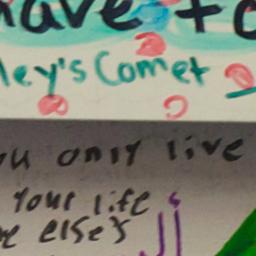 have to
ley's Comet
ou only live
your life
e else's